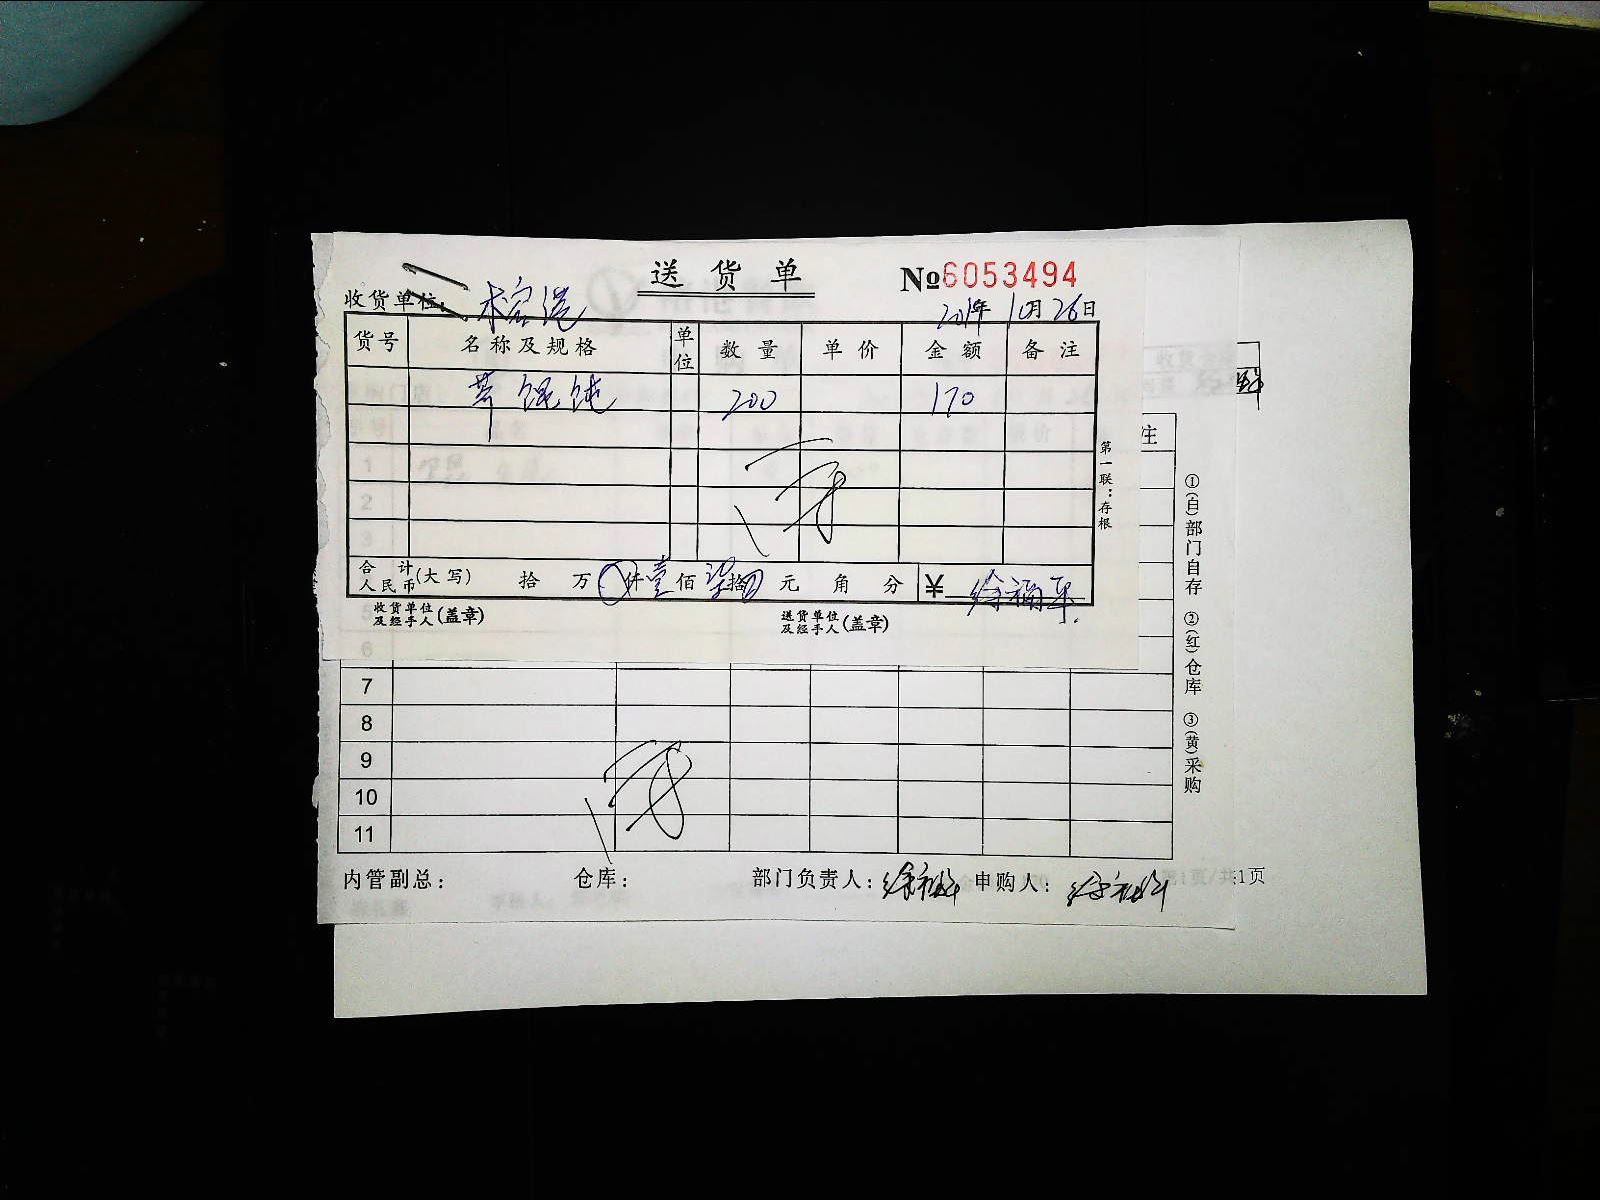 送货单
№6053494
收货单位: 木容港
2019年10月26日
货号 名称及规格 单位 数量 单价 金额 备注
荤馄饨 200 170
第一联：存根
合计人民币(大写) 拾 万 仟壹佰柒拾 元 角 分 ¥ 徐福军
收货单位及经手人(盖章) 送货单位及经手人(盖章)
注
①(白)部门自存 ②(红)仓库 ③(黄)采购
7
8
9
10
11
内管副总: 仓库: 部门负责人: 申购人: 1页